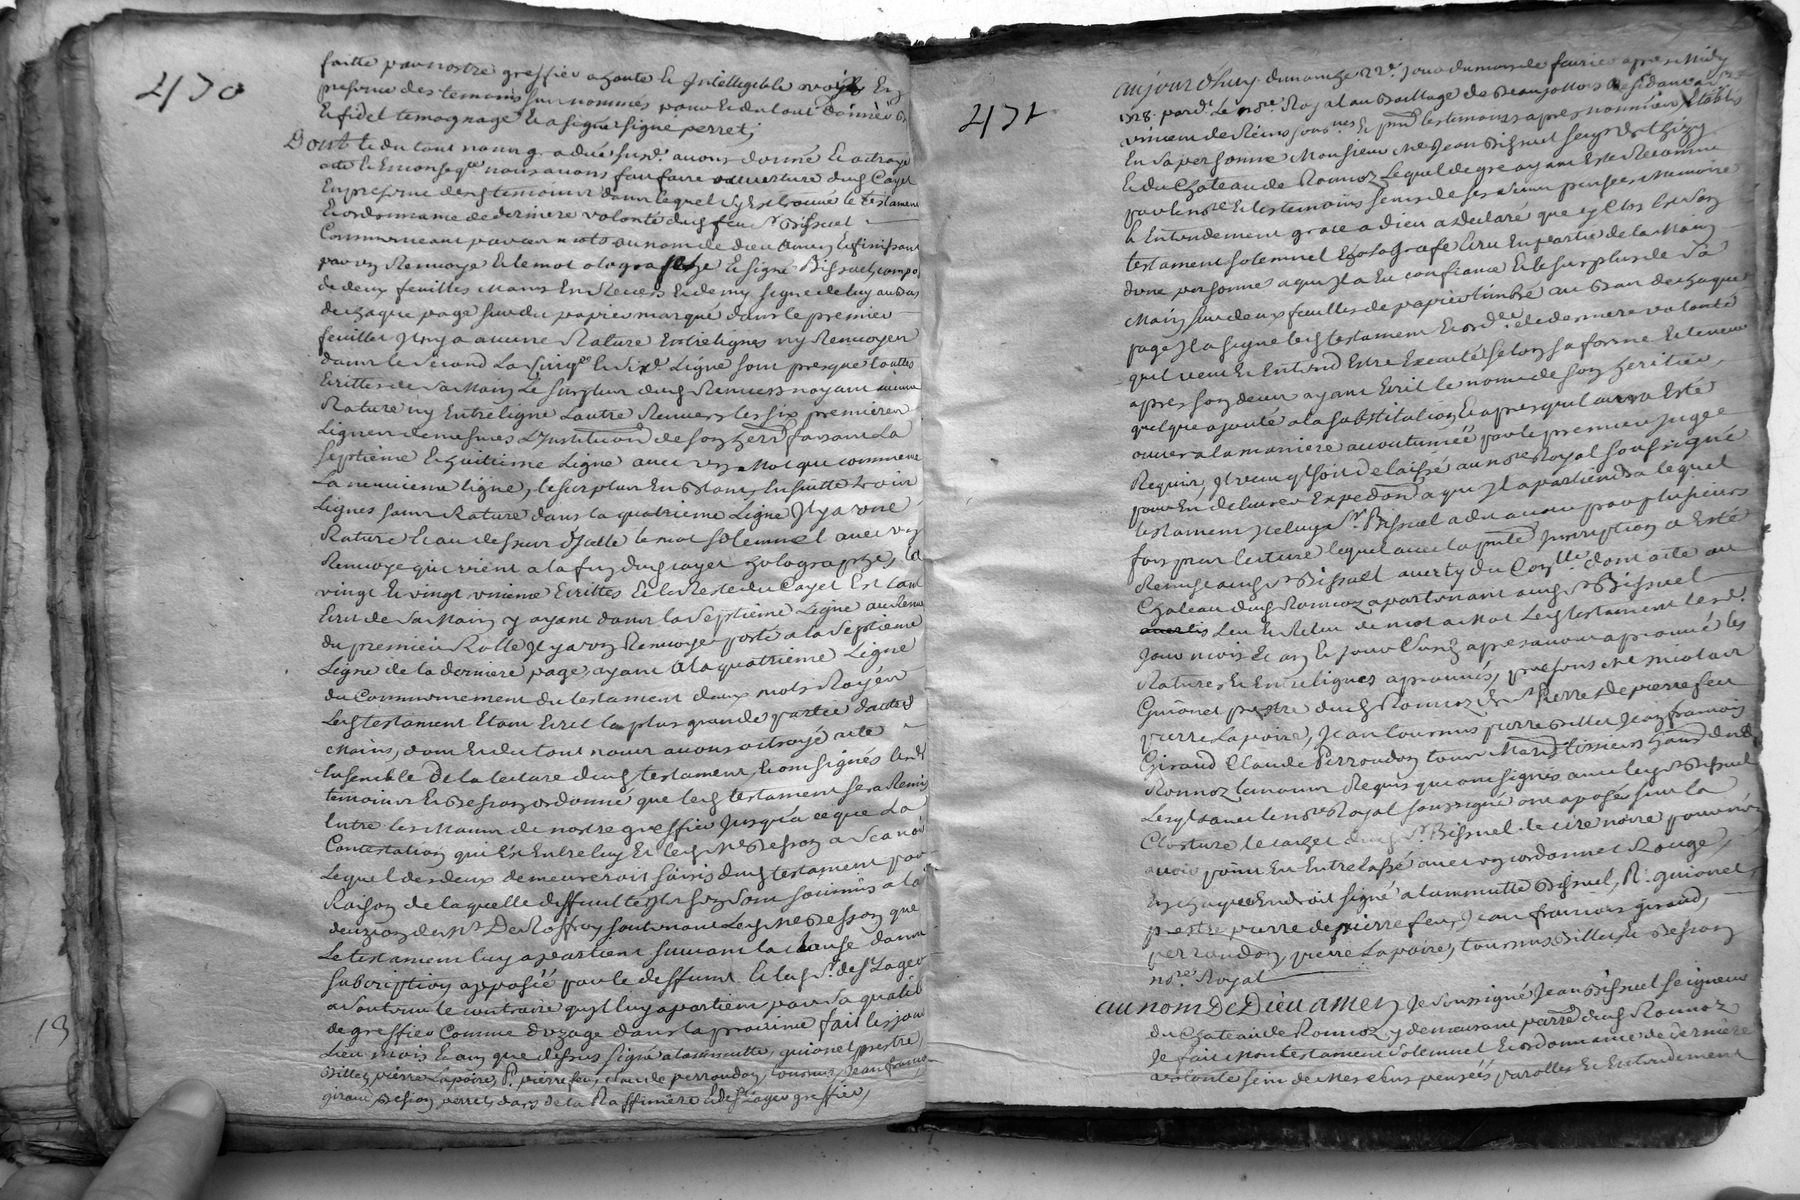 470
faitte par nostre greffier a haute & Intelligible voix En
presence des temoins sur nommés pour Et du tout Donner
& fidel temognage Et a signé signé perret
Dont & du tout nous avons donné & octroyé
acte & En conseq.ce nous avons fait faire ouverture dud Cayet
En presence desd temoins dans lequel sy Est trouvé le testament
& ordonnance de derniere volonté dud feu S.r Bissuel
Commenceant par ces mots au nom de dieu amen & finissant
par un Renvoye & le mot olographe & signé Bissuel compo
de deux feuilles signé de luy au bas
de chaque page sur du papier marqué dans le premier
feuillet Il ny a aucune Rature Entrelignes ny Renvoyer
dans le second La Cinq.e & Six.e Ligne sont presque touttes
Ecrittes de sa Main Le surplus dud Revers nayant aucune
Rature ny Entreligne Lautre Revers les six premieres
Lignes de mesmes L'Institution de son herd faisant La
septieme & huitieme Ligne avec un Mot qui commence
La neuvieme ligne, le surplus En blanc, En suitte trois
Lignes sans Rature dans la quatrieme Ligne Il y a une
Rature & au dessus d'Icelle le mot solemnel avec un
Renvoye qui vient a la fin dud cayet holographe, la
vingt & vingt unieme Ecrittes & le Reste du Cayet Est tout
Ecrit de sa Main y ayant dans la septieme Ligne au Revers
du premier Rolle Il y a un Renvoye porté a la septieme
Ligne de la derniere page, ayant a la quatrieme Ligne
du Commencement du testament deux mots Rayés
Led testament Etant Ecrit la plus grande partie d'autres
Mains, dont & du tout nous avons octroyé acte
Ensemble De la lecture dud testament, & ont signés lesd
temoins & Besson ordonné que led testament sera Remis
Entre les Mains de nostre greffier Jusqu'a ce que La
Contestation qui Est Entre luy & led M.e Besson a scavoir
Lequel des deux demeureroit saisis dud testament par
Raison de laquelle difficulté Ils se sont soumis a la
decizion de M.r De Roffray soutenant Led M.e Besson que
Le testament luy apartient suivant la clause dans
subcription apposée par le deffunt & led S.r desLager
a soutenu le contraire qu'il luy apartient par sa qualité
de greffier Comme d'uzage dans la province fait les jour
Lieu mois & an que dessus signé a la minutte, guionet prestre,
Billet, pierre Lapoire, P. pierrefeu, claude perroudon, tournus, Jean françois
giraud, Besson, perret, greffier,
471
aujourd'huy dimanche 22.e Jour du mois de fevrier apres Midy
1728. pard.t Le no.re Royal au Baillage de Beaujollois Residant a S.t
vincent de Reins soussignés & presents les temoins apres nommés, Establis
En sa personne Monsieur M.re Jean Bissuel seig.r de Thizy
& du Chateau de Ronnoz Lequel de gre ayant Esté Reconnu
par le not.re & les temoins sains de ses sens pensées, Memoire
& Entendement grace a dieu a declaré que cy Clos Est son
testament solemnel & holografe Ecrit En partie de la Main
d'une personne a qui Il a Eu confiance & le surplus de sa
Main sur deux feuilles de papier timbré au Bas de chaque
page Il a signé led testament & ord.ce de derniere volonté
quil veut & Entend Estre Executé selon sa forme & teneur
apres son deces ayant Ecrit le nom de son heritier,
quelque ajouté a la substitution, & apres quil aura Esté
ouvert a la maniere accoutumée par le premier Juge
Requis, Il veut q'il soit delaissé au not.re Royal soussigné
pour En delivrer Expedon a qui Il apartiendra lequel
testament Iceluy S.r Bissuel a dit avoir par plusieurs
fois pris lecture lequel avec la p.nte Inscription a Esté
Remis aud S.r Bissuel averty du Con.lle dont acte au
Chateau dud Ronnoz apartenant aud S.r Bissuel
Leu & Releu de mot a Mot Led testament lesd.
Jour mois & an & jour Clos, apres avoir aprouvé les
Ratures & Entrelignes aprouvés, presens M.e nicolas
Guionet prestre dud Ronnoz M.e Pierre de pierrefeu
pierre Lapoire, Jean tournus pierre Billet, Jean françois
Giraud Claude Perroudon tous Mard tissiers h'ans dud
Ronnoz temoins Requis qui ont signés avec led S.r Bissuel
Lesquels avec le no.re Royal soussigné ont aposés sur la
Closture le cachet dud S.r Bissuel de cire noire pour n'en
avoir point Eu Entrelassé avec un cordonnet Rouge,
En chaque Endroit signé a la minutte Bissuel, N. guionet,
prestre, pierre de pierrefeu, Jean françois giraud,
perroudon, pierre Lapoire, tournus Billet, & Besson
no.re Royal
au nom De Dieu amen Je soussigné Jean Bissuel seigneur
du Chateau de Ronnoz y demeurant parr.e dud Ronnoz
Je fait Mon testament solemnel & ordonnance de derniere
volonté sein de Mes sens pensées parolles & Entendement